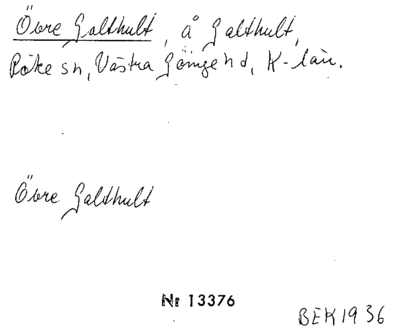 Övre Galthult, å Galthult,
Röke sn, Västra Göinge hd, K-län.
Övre Galthult
Nr 13376
BEK1936